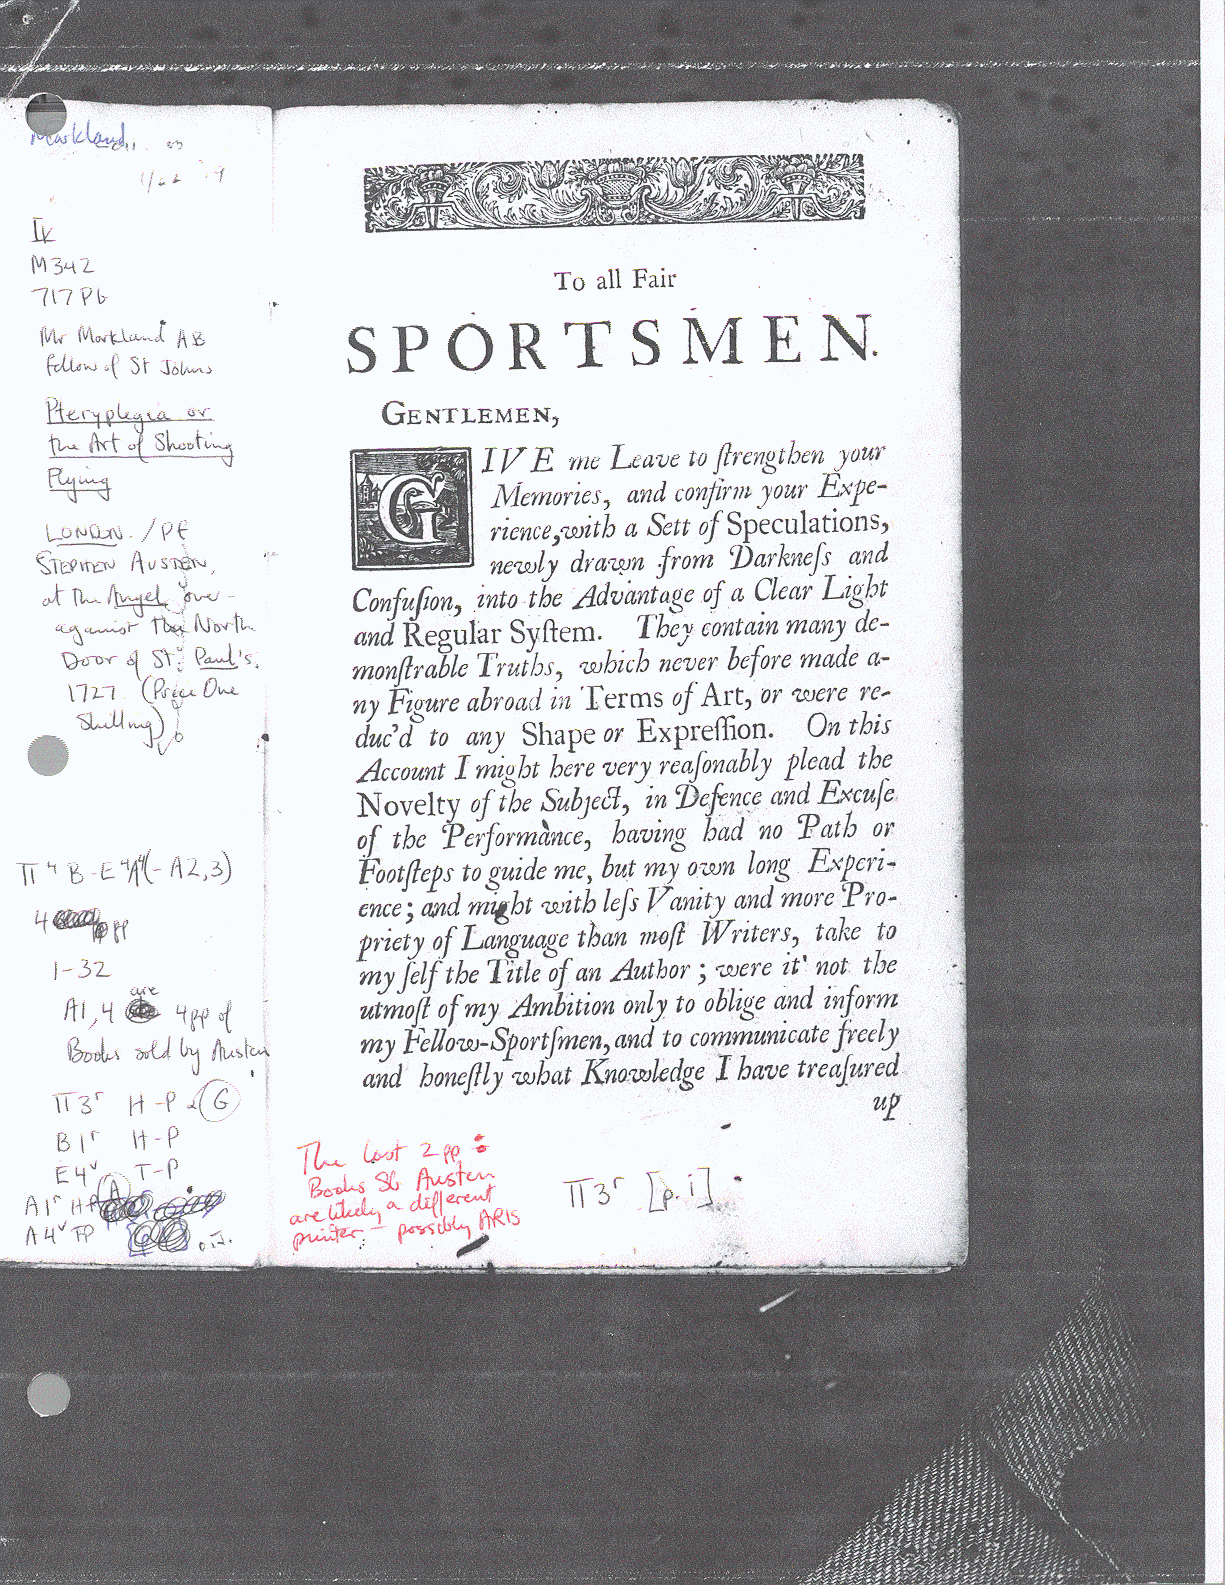 Markland
Ik
M342
717Pb
Mr Markland AB
Fellow of St Johns
Pteryplegia or
the Art of Shooting
Flying
LONDON. / PF
STEPHEN AUSTEN,
at the Angel over-
against the North
Door of St. Paul's.
1727 (Price One
Shilling)
π⁴ B-E⁴A⁴(-A2,3)
4 pp
1-32
A1,4 are 4pp of
Books sold by Austen
π3ʳ H-P & G
B1ʳ H-P
E4ᵛ T-P
A1ʳ HP
A4ᵛ TP
To all Fair
SPORTSMEN.
GENTLEMEN,
GIVE me Leave to ſtrengthen your
Memories, and confirm your Expe-
rience, with a Sett of Speculations,
newly drawn from Darkneſs and
Confuſion, into the Advantage of a Clear Light
and Regular Syſtem. They contain many de-
monſtrable Truths, which never before made a-
ny Figure abroad in Terms of Art, or were re-
duc'd to any Shape or Expreſſion. On this
Account I might here very reaſonably plead the
Novelty of the Subject, in Defence and Excuſe
of the Performance, having had no Path or
Footſteps to guide me, but my own long Experi-
ence; and might with leſs Vanity and more Pro-
priety of Language than moſt Writers, take to
my ſelf the Title of an Author; were it not the
utmoſt of my Ambition only to oblige and inform
my Fellow-Sportſmen, and to communicate freely
and honeſtly what Knowledge I have treaſured
up
The last 2 pp
Books Sb Austen
are likely a different
printer - possibly ARIS
π3ʳ [p. i]